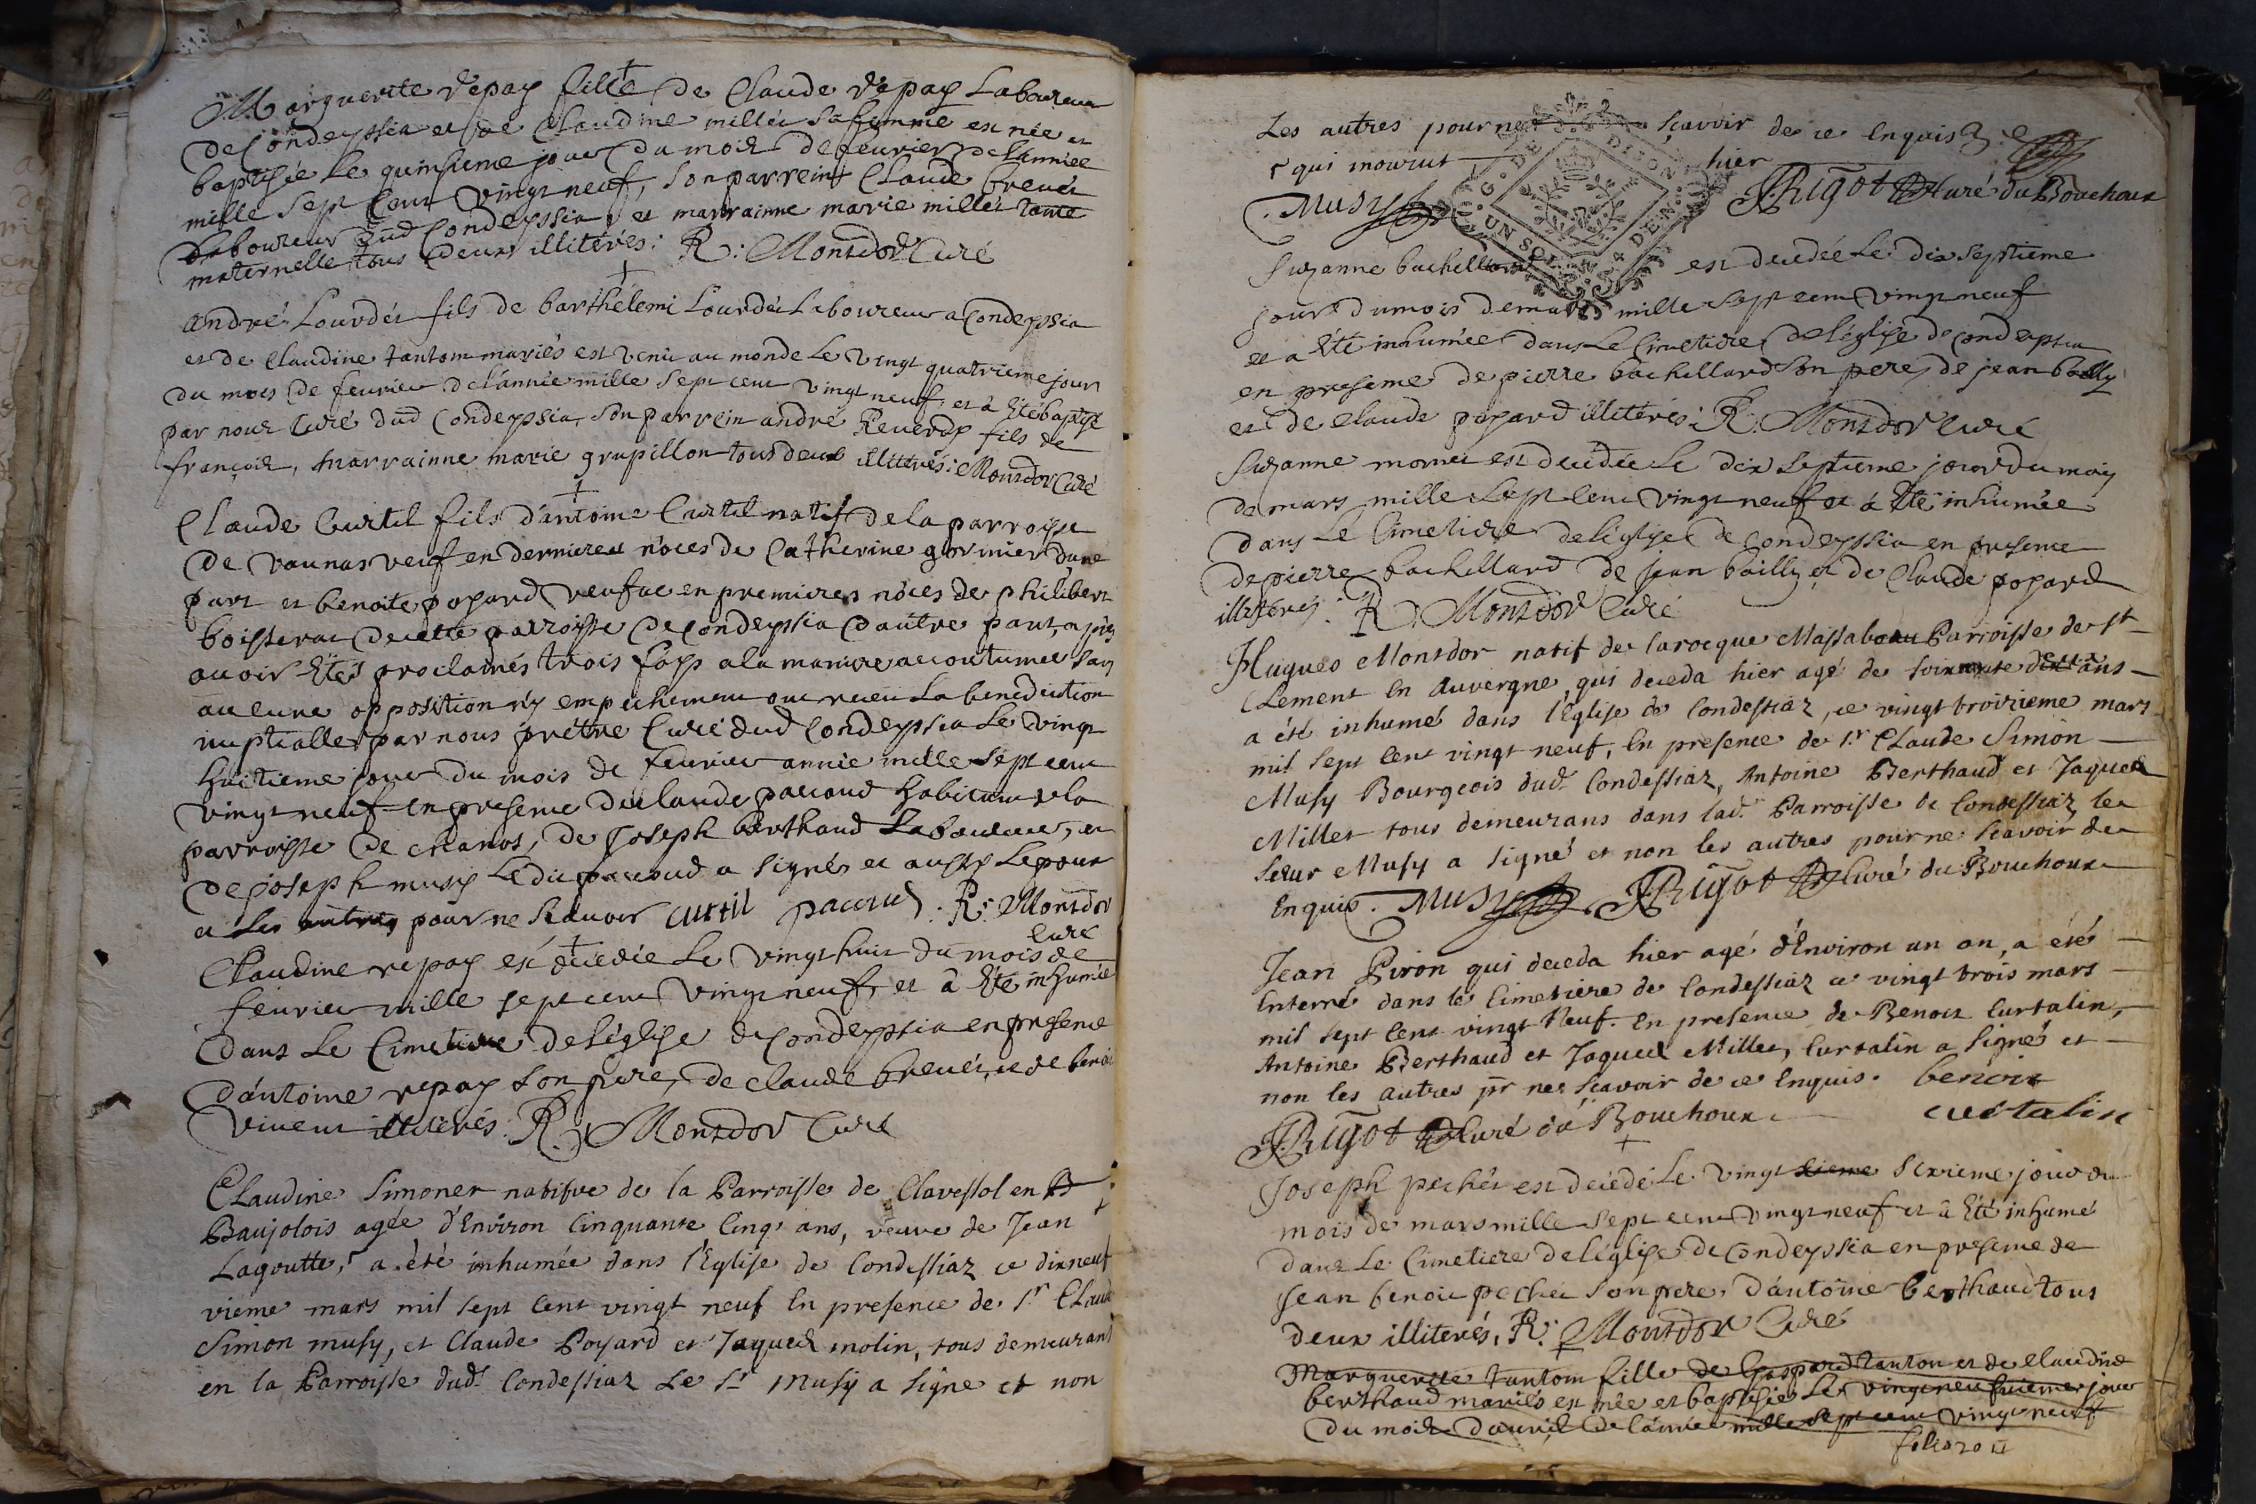 Marguerite repay fille de Claude repay Laboureur
de condeyssia et de Claudine millet sa femme est née et
baptisée le quinsieme jour du mois de feurier de l'année
mille sept cent vingt neuf, son parrein Claude breuet
Laboureur dud condeyssia, et marrainne marie millet tante
maternelle tous deux illiterés: R: Montdor Curé
andré Lourdet fils de barthelemi Lourdet Laboureur a condeyssia
et de Claudine tantom mariés est venu au monde le vingt quatrieme jour
du mois de feurier de l'année mille sept cent vingt neuf, et a été baptisé
par nous Curé dud condeyssia, son parrein andré Reuerdy fils de
françois, marrainne marie grupillon tous deux illiterés: Montdor Curé
Claude Curtil fils d'antoine Curtil natif de la parroisse
de vaunas veuf en dernieres nôces de Catherine gormier d'une
part et benoite poyard veufue en premieres nôces de philibert
boisserat de cette parroisse de condeyssia d'autre part, apres
auoir êtés proclamés trois foys a la maniere accoutumée sans
aucune opposition n'y empechement ont receu la benediction
nuptialle par nous prêtre Curé dud condeyssia le vingt
huitieme jour du mois de feurier année mille sept cent
vingt neuf en presence de Claude pacoud habitant de la
parroisse de chanos, de Joseph berthaud Laboureur, et
de joseph musy Ledit pacoud a signés et aussy Lepoux
et les autres pour ne scauoir curtil pacoud. R: Montdor
curé
Claudine repay est décédée le vingt huit du mois de
feurier mille sept cent vingt neuf, et a été inhumée
dans le Cimetiere de l'église de condeyssia en presence
d'antoine repay son pere, de claude breuet, et de benoi
viuent illiterés: R. Montdor Curé
Claudine Simoner natifve de la Parroisse de Clavessol en B
Baujolois agée d'Environ Cinquante Cinq ans, veuve de Jean
Lagoutte, r a été inhumée dans l'Eglise de Condessiaz ce dixneuf
vieme mars mil sept Cent vingt neuf En presence de Sr Claude
Simon musy, et Claude Poyard et Jaques molin, tous demeurans
en la Parroisse dudt Condessiaz Le Sr Musy a signe et non
Les autres pour ne scavoir de ce Enquis
r qui mourut hier
Musy JRigot Curé du Bouchoux
G. DE DIJON
UN SOL 4 DEN.
Suzanne bachellard est decedée le dix septieme
jour du mois de mars mille sept cent vingt neuf
et a été inhumée dans le Cimetiere de l'église de condeyssia
en presence de pierre bachellard son pere, de jean bailly
et de Claude poyard illiterés: R. Montdor Curé
Suzanne mornet est decedée le dix septieme jour du mois
de mars mille sept cent vingt neuf et a été inhumée
dans le Cimetiere de l'église de condeyssia en presence
de pierre bachellard de jean bailly et de Claude poyard
illiterés: R. Montdor Curé
Hugues Montdor natif de Larocque Massabeau Parroisse de st
Clement En Auvergne, qui deceda hier agé de soixante deux ans
a été inhumé dans l'Eglise de Condessiaz, ce vingt troizieme mars
mil sept Cent vingt neuf, En presence de Sr Claude Simon
Musy Bourgeois dudt Condessiaz, Antoine Berthaud et Jaques
Millet tous demeurans dans ladt Parroisse de Condessiaz, le
Sieur Musy a signé et non les autres pour ne scavoir de
Enquis. Musy JRigot Curé du Bouchoux
Jean Piron qui deceda hier agé d'Environ un an, a été
Enterré dans le Cimetiere de Condessiaz ce vingt trois mars
mil sept Cent vingt Neuf. En presence de Benoit Curtalin,
Antoine Berthaud et Jaques Millet, Curtalin a signés et
non les autres pr ne scavoir de ce Enquis. benoit
JRigot Curé du Bouchoux curtalin
Joseph pechet est décédé le vingt sieme sixieme jour du
mois de mars mille sept cent vingt neuf et a été inhumé
dans le Cimetiere de l'église de condeyssia en presence de
jean benoit pechet son pere, d'antoine berthaud tous
deux illiterés, R: Montdor Curé
Marguerite tantom fille de Gaspard tanton et de Claudine
berthaud mariés est née et baptisée le vingt neufuieme jour
du mois d'auril de l'année mille sept cent vingt neuf